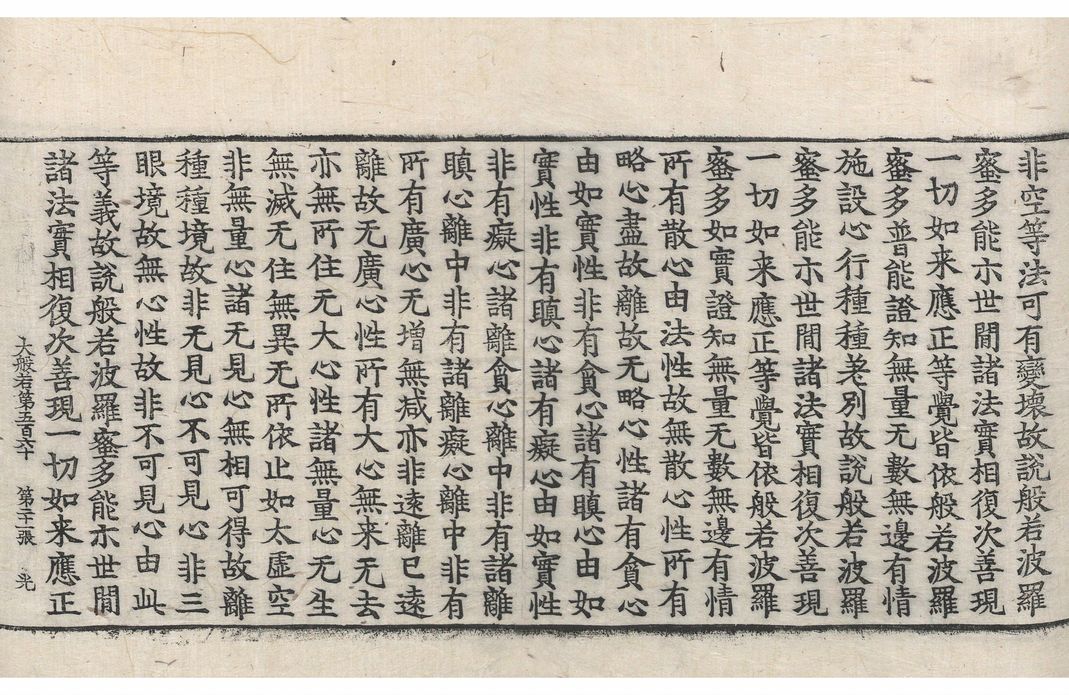 非空等法可有變壞故說般若波羅
蜜多能示世閒諸法實相復次善現
一切如来應正等覺皆依般若波羅
蜜多普能證知無量无數無邊有情
施設心行種種差別故說般若波羅
蜜多能示世閒諸法實相復次善現
一切如来應正等覺皆依般若波羅
蜜多如實證知無量无數無邊有情
所有散心由法性故無散心性所有
略心盡故離故无略心性諸有貪心
由如實性非有貪心諸有瞋心由如
實性非有瞋心諸有癡心由如實性
非有癡心諸離貪心離中非有諸離
瞋心離中非有諸離癡心離中非有
所有廣心无增無减亦非遠離已遠
離故无廣心性所有大心無来无去
亦無所住无大心性諸無量心无生
無滅无住無異无所依止如太虛空
非無量心諸无見心無相可得故離
種種境故非无見心不可見心非三
眼境故無心性故非不可見心由此
等義故說般若波羅蜜多能示世閒
諸法實相復次善現一切如来應正
大般若第五百六十　第二十一張　光